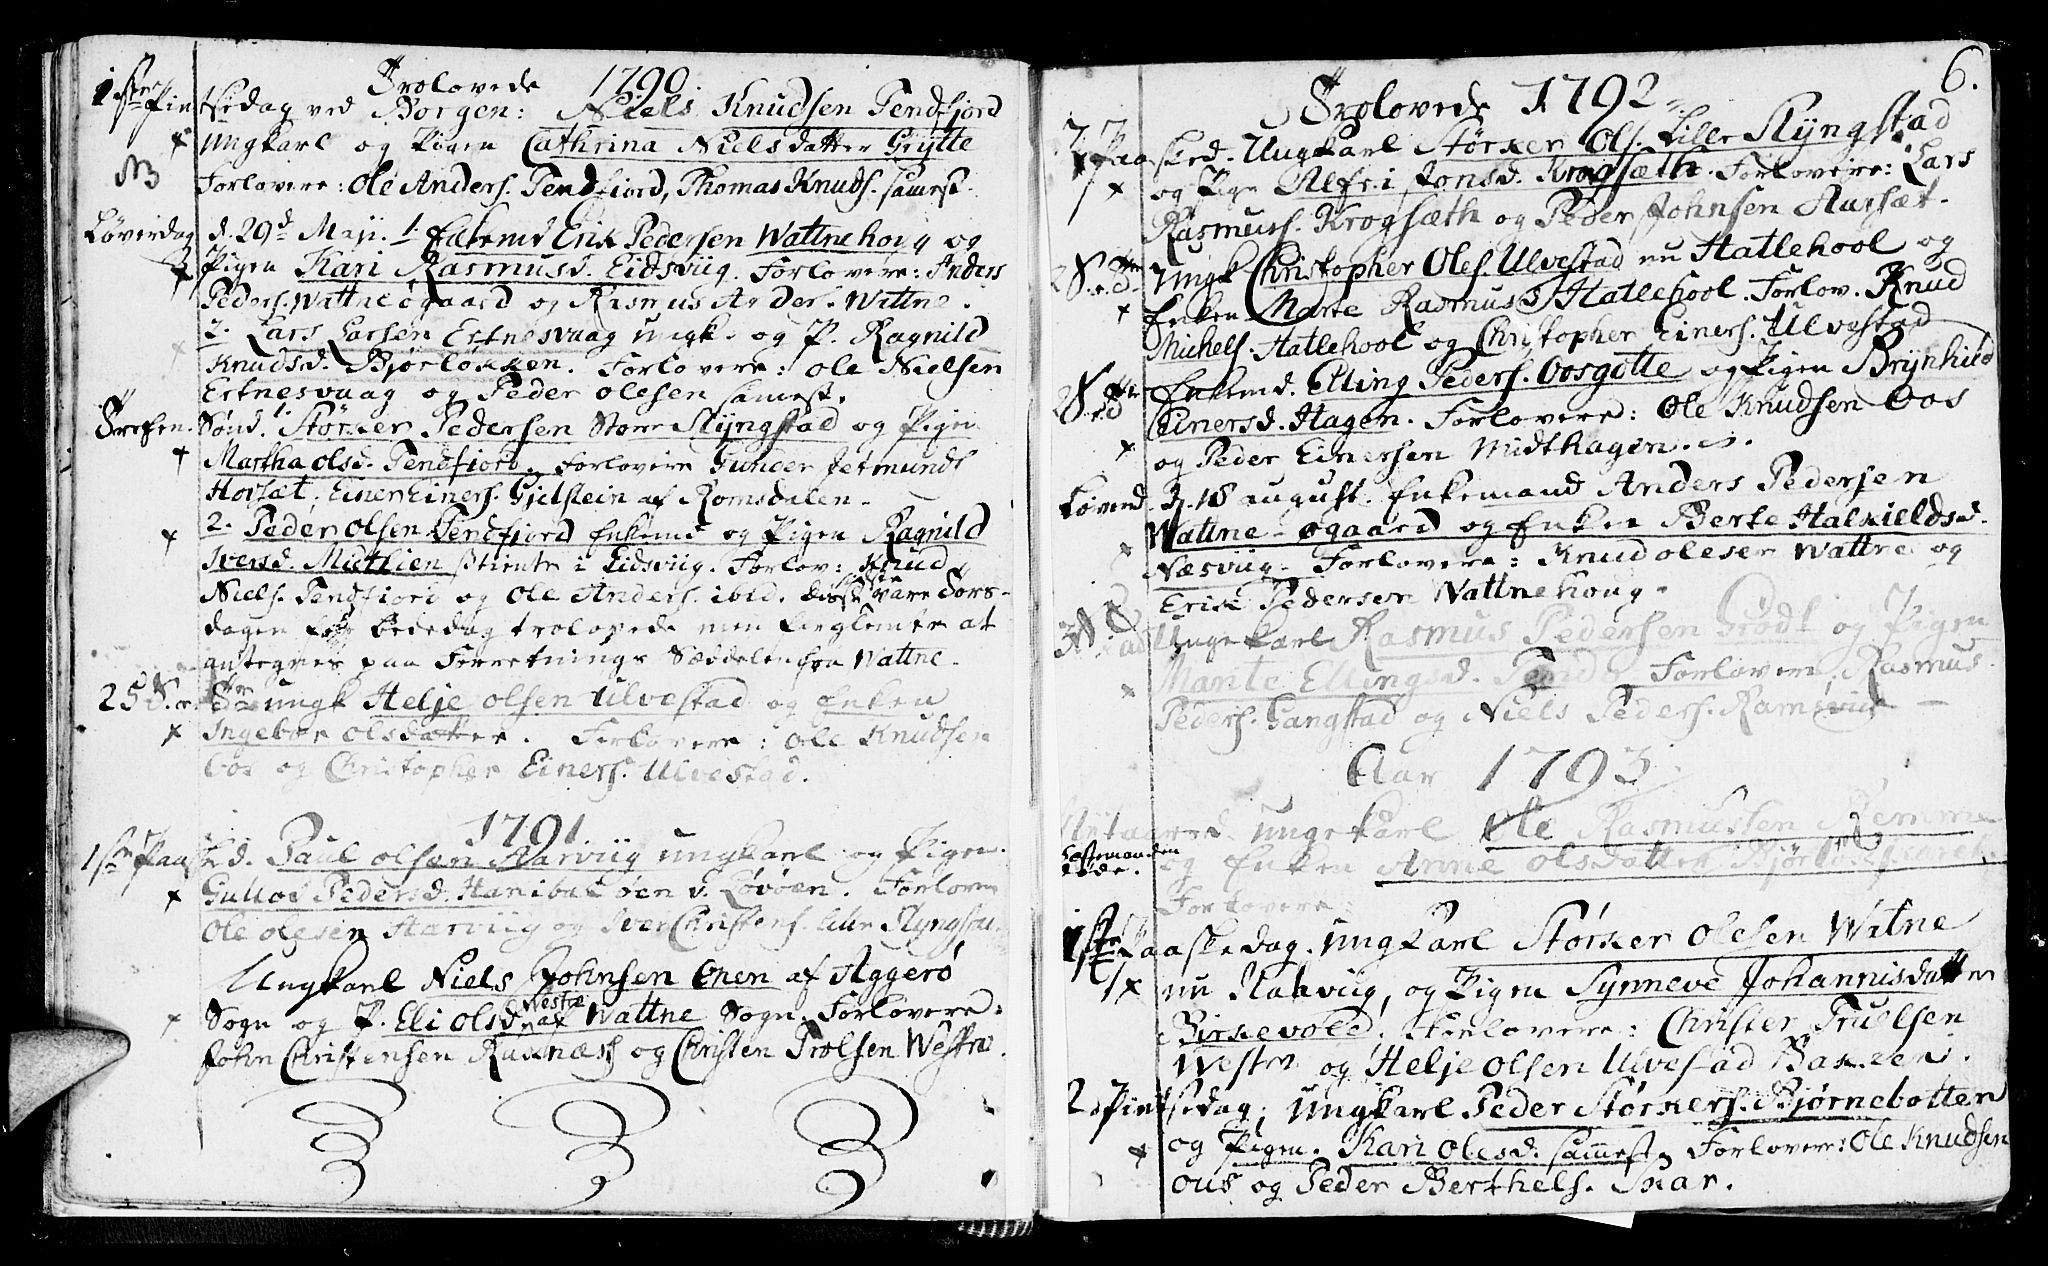 Trolovede 1790.
1ste Pintsedag ved Borgen: Niels Knudsen Tendfjord
Ungkarl og Pigen Cathrina Nielsdatter Grytte
NB Forlovere: Ole Anders. Tendfiord, Thomas Knuds. samest.
Løverdag d. 29d Maji. 1. Enkemd Erik Pedersen Wattnehoug og
Pigen Kari Rasmusd. Eidsviig. Forlovere: Anders
Peders. Wattneøgaard og Rasmus Anders. Wattne.
2. Lars Larsen Ertnesvaag Ungk. og P. Ragnild
Knudsd. Bjørløkken. Forlovere: Ole Nielsen
Ertnesvaag og Peder Olesen samest.
Trefen. Sønd. Størker Pedersen Store Slyngstad og Pigen
Martha Olsd. Tendfiord. Forlovere Gunder Jetmunds.
Horsæt. Einer Einers. Gjelstein af Romsdalen.
2. Peder Olsen Tendfjord Enkemd og Pigen Ragnild
Iversd. Muthien tiente i Eidsviig. Forlov: Knud
Niels. Tendfiord og Ole Anders. ibid. disse vare Tors-
dagen bededag trolovede men forglemte at
antegnes paa Forretnings Sæddelen fra Wattne.
25 S. Ungk Helje Olsen Ulvestad og Enken
Ingebor Olsdatter. Forlovere: Ole Knudsen
Oos og Christopher Einers. Ulvestad.
1791.
1ste Paasked. Paul Olsen Aarviig ungkarl og Pigen
Gulloe Pedersd. Hanibal øen v. Løvøen. Forlovere
Ole Olesen Harviig og Iver Christens. Lille Slyngsta.
Ungkarl Niels Johnsen Onen af Aggerø
Sogn og P. Eli Olsd. Westre af Wattne Sogn. Forlovere:
John Christensen Raknæs og Christen Trolsen Westre.
6.
Trolovede 1792.
2. Paasked. Ungkarl Størker Ols. Lille Slyngstad
og Pigen Alfri Jonsd. Krogsæth. Forlovere: Lars
Rasmuss. Krogsæth og Peder Johnsen Aursæt.
2 S. Ungk Christopher Oles. Ulvestad nu Hatlehool og
Enken Marte Rasmusd Hatlehool. Forlov. Knud
Michels. Hatlehool og Christopher Einers. Ulvestad
2 S. Enkemd. Elling Peders. Oosgotte og Pigen Brynhild
Einersd. Hagen. Forlovere: Ole Knudsen Oos
og Peder Einersen Midthagen.
Løverd. d. 18 august. Enkemand Anders Pedersen
Wattne-øgaard og Enken Berte Halkieldsd.
Næsviig. Forlovere: Knud Olesen Wattne og
Erik Pedersen Wattnehoug.
Ungekarl Rasmus Pedersen Grødt og Pigen
Mante Ellingsd. Tendø Forlovere Rasmus
Peders. Gangstad og Niels Peders. Ramsviig
Aar 1793.
Nytaarsd. Ungekarl Ole Rasmussen Remme
og Enken Anne Olsdatter
Fæstemanden døde.
Forlovere:
1ste Paaskedag. Ungkarl Størker Olesen Watne
nu Aarviig, og Pigen Synneve Johannisdatter
Birkevold. Forlovere: Christen Truelsen
Westre og Helje Olsen Ulvestad Bakken.
2. Pintsedag, Ungkarl Peder Størkers. Bjørnebotten
og Pigen Kari Olesd. sammest. Forlovere: Ole Knudsen
Ous og Peder Berthels. Skar.